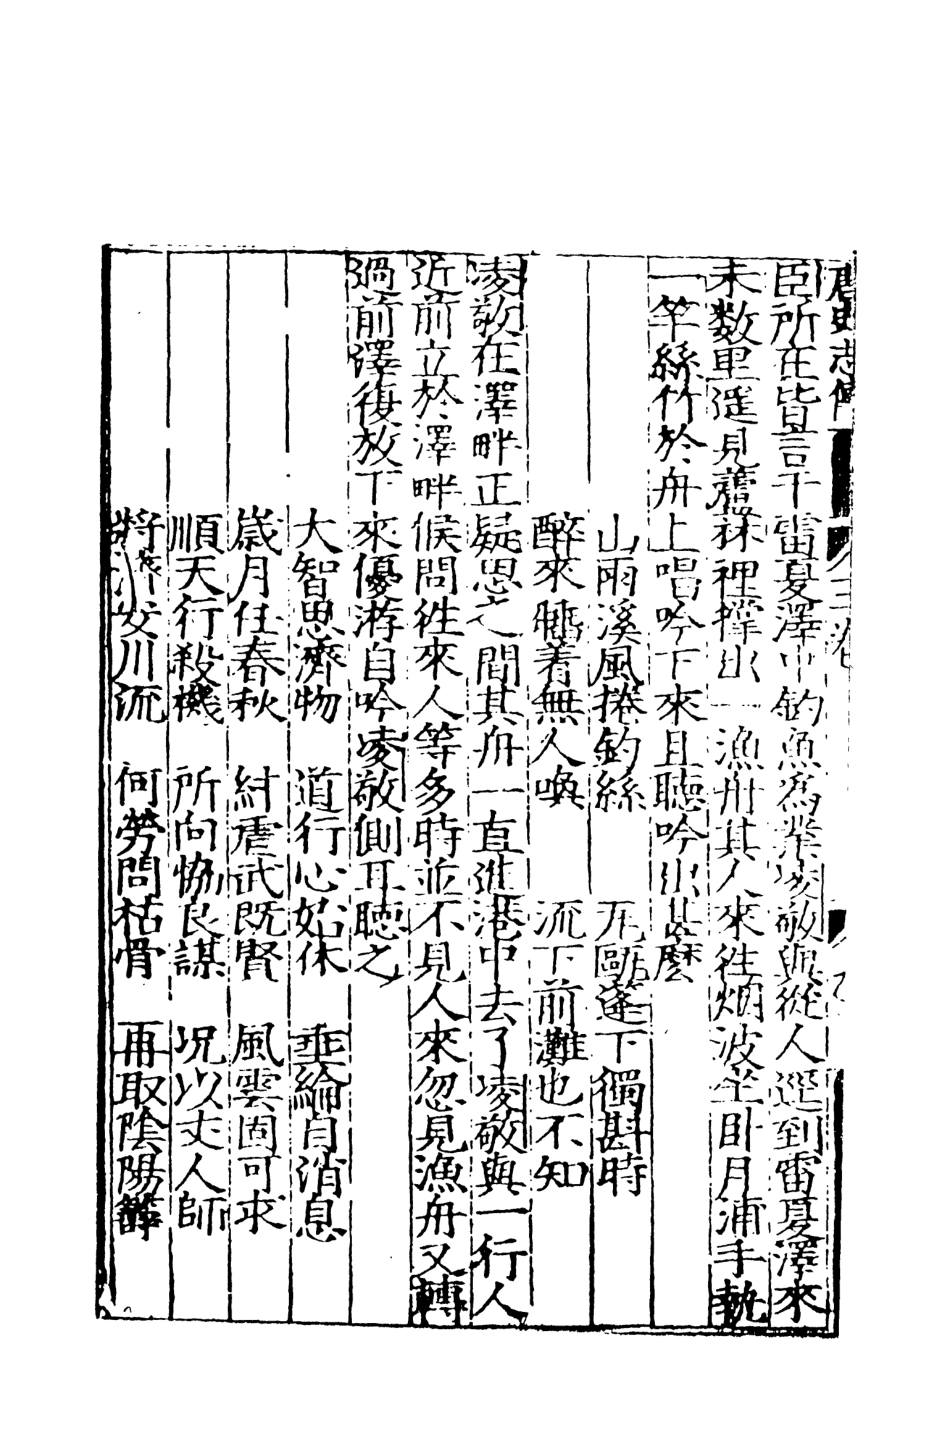 唐史志傳 三卷
臣所在皆言于雷夏澤中釣魚為業凌敬與從人逕到雷夏澤來
未数里遥見蘆林裡撑出一漁舟其人來往烟波坐卧月浦手執
一竿絲竹於舟上唱吟下來且聽吟出甚麼
山雨溪風捲釣絲 瓦甌篷下獨斟時
醉來睡着無人喚 流下前灘也不知
凌敬在澤畔正疑思之間其舟一直進港中去了凌敬與一行人
近前立於澤畔候問徃來人等多時並不見人來忽見漁舟又轉
過前澤復放下來優游自吟凌敬側耳聽之
大智思濟物 道行心始休 垂綸自消息
歲月任春秋 紂虐武既賢 風雲固可求
順天行殺機 所向恊良謀 况以丈人師
將 安川流 何勞問枯骨 再取陰陽